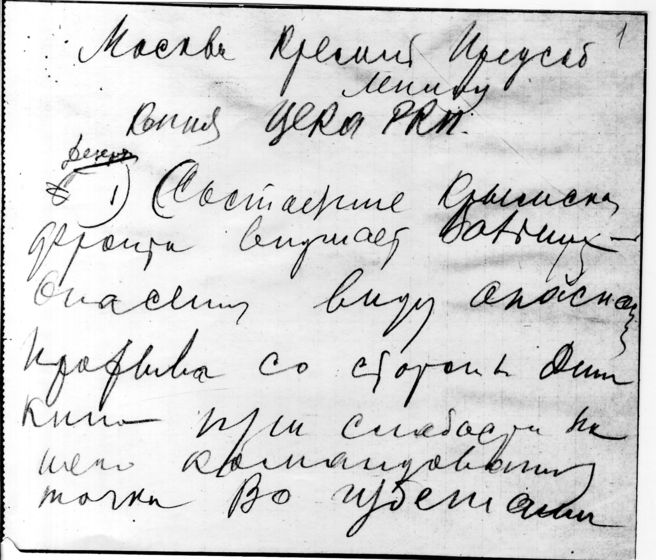 1
Москва Кремль Предсов
Ленину
Копия ЦЕКа РКП.
1) Состояние Крымска
фронта внушает
опасения виду опасно
прорыва со стороны
при слабости на
шего командования
точка Во избежании